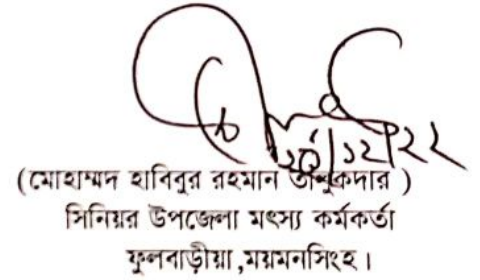 /১২/২২
(মোহাম্মদ হাবিবুর রহমান তালুকদার )
সিনিয়র উপজেলা মৎস্য কর্মকর্তা
ফুলবাড়ীয়া ,ময়মনসিংহ।